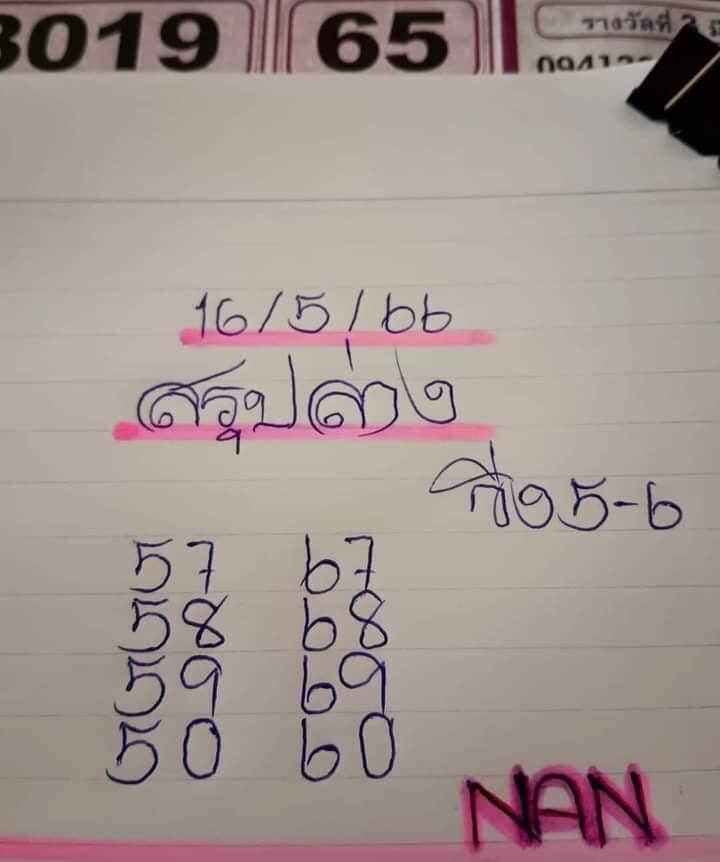 3019 65 รางวัลที่ 2 มี
09412
16/5/66
สรุปล่าง
วิ่ง 5-6
57 67
58 68
59 69
50 60
NAN